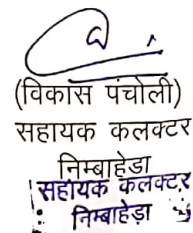 (विकास पंचोली)
सहायक कलक्टर
निम्बाहेडा
सहायक कलक्टर
निम्बाहेड़ा